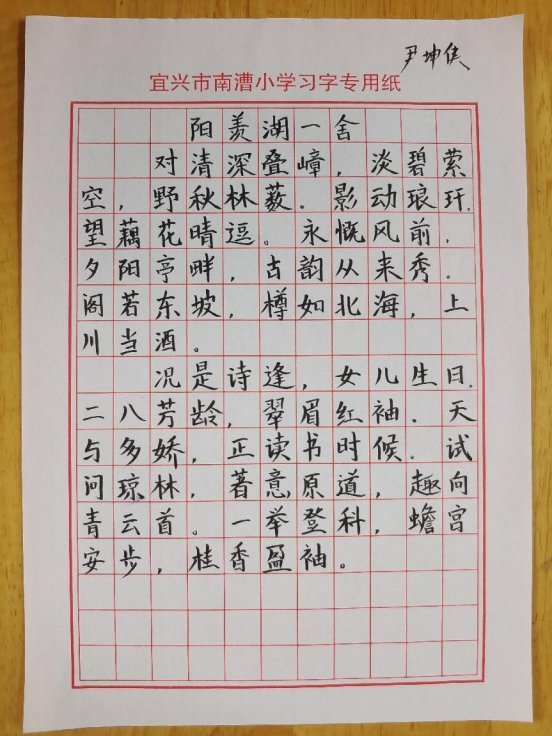 尹坤侯
宜兴市南漕小学习字专用纸
阳羡湖一舍
对清深叠嶂，淡碧萦
空，野秋林薮．影动琅玕．
望藕花晴逗。永慨风前，
夕阳亭畔，古韵从来秀．
阁若东坡，樽如北海，上
川当酒。
况是诗逢，女儿生日．
二八芳龄，翠眉红袖．天
与多娇，正读书时候．试
问琼林，著意原道，趣向
青云首。一举登科，蟾宫
安步，桂香盈袖。